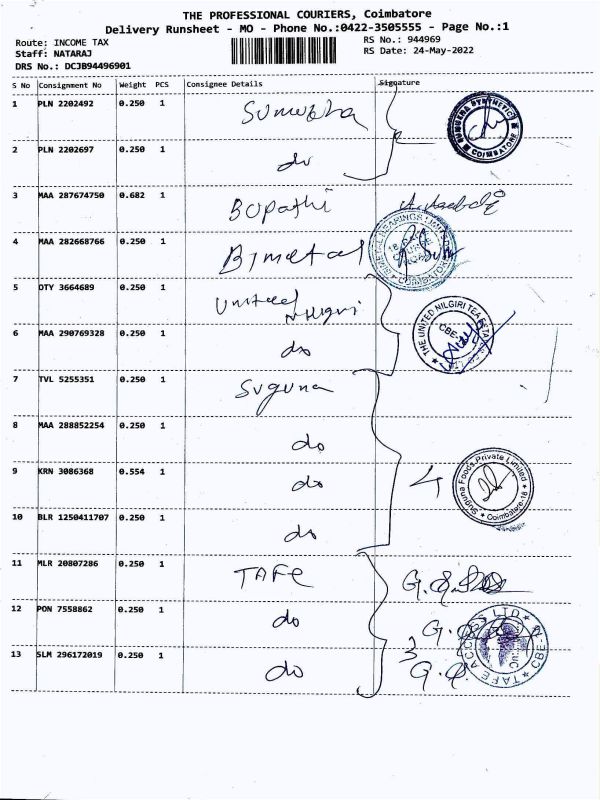 THE PROFESSIONAL COURIERS, Coimbatore
Delivery Runsheet - MO - Phone No.:0422-3505555 - Page No.:1
Route: INCOME TAX
RS No.: 944969
Staff: NATARAJ
RS Date: 24-May-2022
DRS No.: DCJB94496901
S No Consignment No Weight PCS Consignee Details Signature
1 PLN 2202492 0.250 1
2 PLN 2202697 0.250 1 do
3 MAA 287674750 0.682 1 Bopathi
4 MAA 282668766 0.250 1 Bimetal
5 OTY 3664689 0.250 1 United Nilgiri
THE UNITED NILGIRI TEA ESTA
CBE-
6 MAA 290769328 0.250 1 do
7 TVL 5255351 0.250 1 Suguna
8 MAA 288852254 0.250 1 do
9 KRN 3086368 0.554 1 do 4
Suguna Foods Private Limited
Coimbatore-18
10 BLR 1250411707 0.250 1 do
11 MLR 20807286 0.250 1 TAFE
12 PON 7558862 0.250 1 do
TAFE ACCESS LTD
13 SLM 296172019 0.250 1 do 3